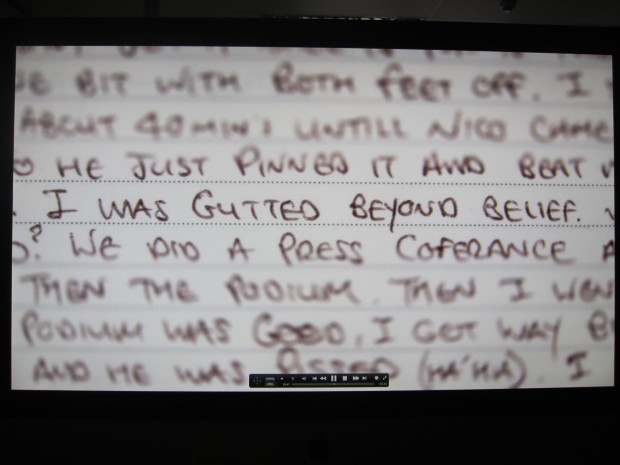 BIT WITH BOTH FEET OFF. I
ABOUT 40 MIN'S UNTILL NICO CAME
HE JUST PINNED IT AND BEAT
. I WAS GUTTED BEYOND BELIEF.
? WE DID A PRESS COFERANCE
THEN THE PODIUM. THEN I WEN
PODIUM WAS GOOD, I GOT WAY
AND HE WAS (HA'HA). I